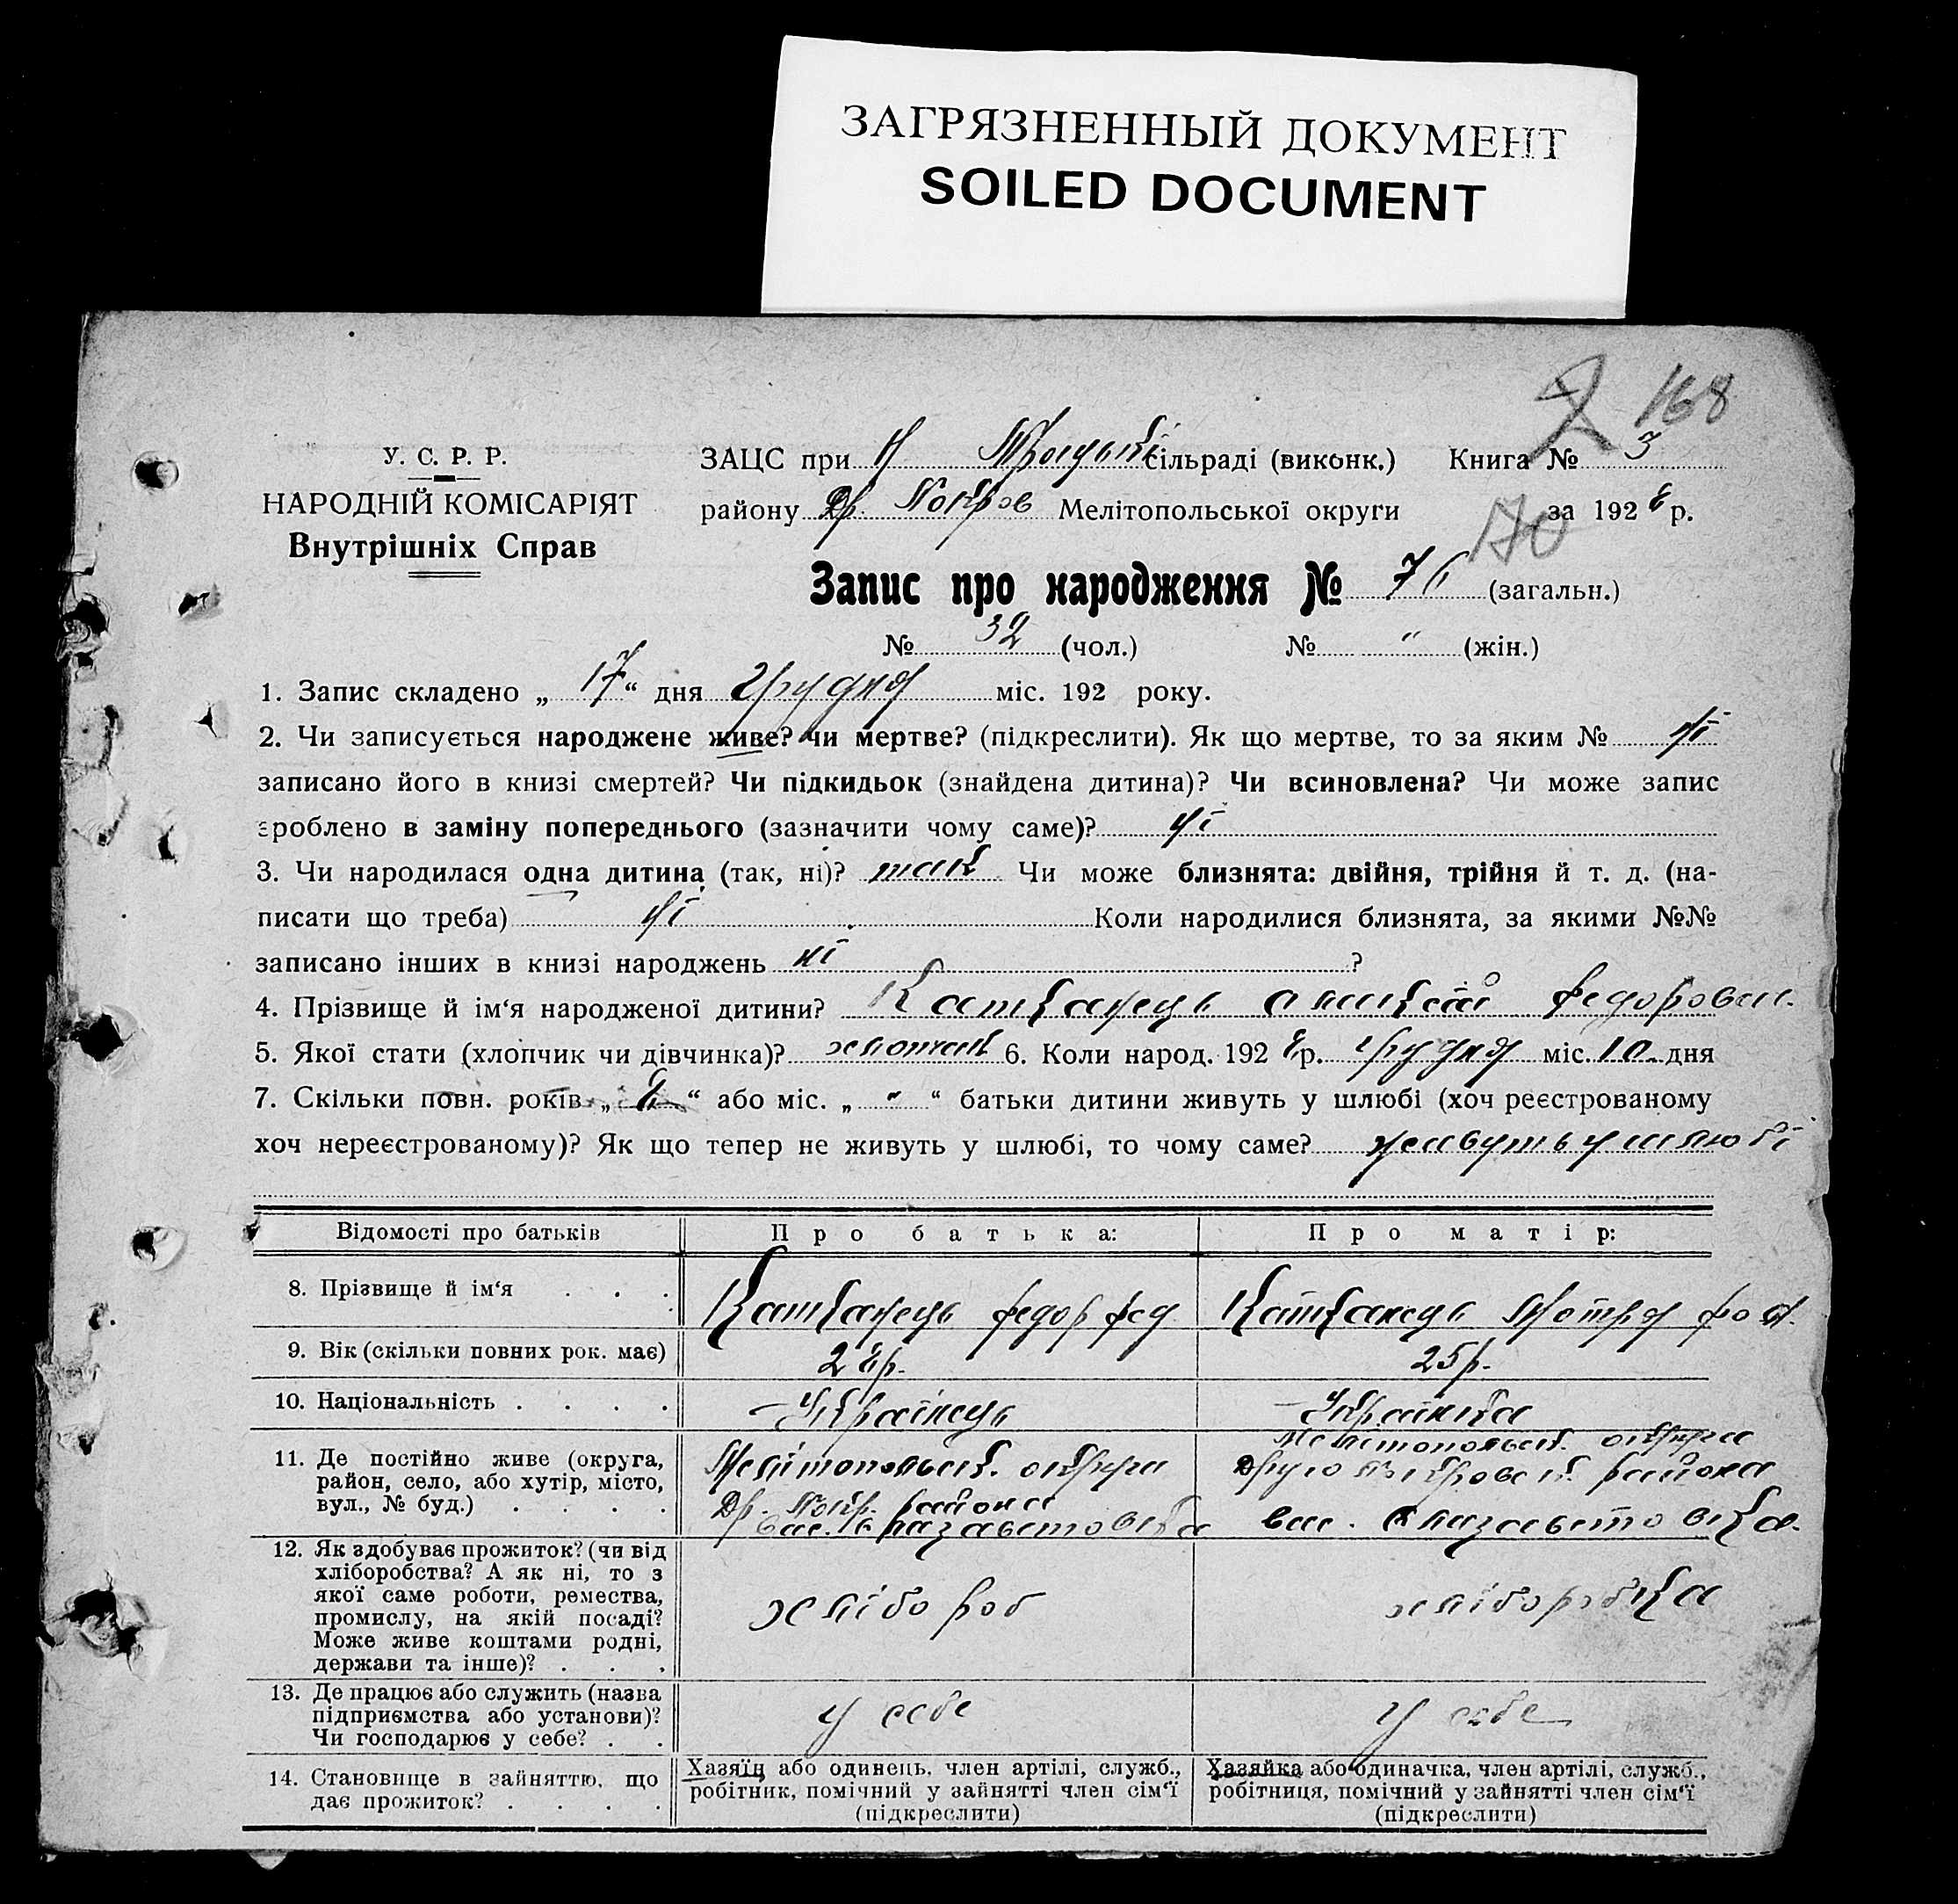 ЗАГРЯЗНЕННЫЙ ДОКУМЕНТ
SOILED DOCUMENT
168
У. С. Р. Р.
НАРОДНІЙ КОМІСАРІЯТ
Внутрішніх Справ
ЗАЦС при Н Троицькі сільраді (виконк.) Книга № 3
району Др. Покров Мелітопольської округи за 1928 р.
170
Запис про народження № 76 (загальн.)
№ 32 (чол.) № " (жін.)
1. Запис складено „ 17 “ дня грудня міс. 192 року.
2. Чи записується народжене живе? чи мертве? (підкреслити). Як що мертве, то за яким № ні
записано його в книзі смертей? Чи підкидьок (знайдена дитина)? Чи всиновлена? Чи може запис
зроблено в заміну попереднього (зазначити чому саме)? ні
3. Чи народилася одна дитина (так, ні)? так Чи може близнята: двійня, трійня й т. д. (на-
писати що треба) ні Коли народилися близнята, за якими №№
записано інших в книзі народжень ні ?
4. Прізвище й ім‘я народженої дитини? Катканець Федоров
5. Якої стати (хлопчик чи дівчинка)? хлопчик 6. Коли народ. 1928 р. грудня міс. 10 дня
7. Скільки повн. років „ 8 “ або міс. „ " “ батьки дитини живуть у шлюбі (хоч реєстрованому
хоч нереєстрованому)? Як що тепер не живуть у шлюбі, то чому саме? живуть у шлюбі
Відомості про батьків
Про батька:
Про матір:
8. Прізвище й ім‘я . . .
Катканець Федор Фед
Катканець Мотря
9. Вік (скільки повних рок. має)
28 р.
25 р.
10. Національність . . . .
Українець
Українка
11. Де постійно живе (округа,
район, село, або хутір, місто,
вул., № буд.) . . . .
Мелітопольськ. округи
Др. Покр. района
вас. Єлизаветовка
Мелітопольськ. округи
Друго Покровськ. района
вас. Єлизаветовка
12. Як здобуває прожиток? (чи від
хліборобства? А як ні, то з
якої саме роботи, ремества,
промислу, на якій посаді?
Може живе коштами родні,
держави та інше)? . . .
хлібороб
хліборобка
13. Де працює або служить (назва
підприємства або установи)?
Чи господарює у себе? . .
у себе
у себе
14. Становище в зайняттю, що
дає прожиток? . . . .
Хазяїн або одинець, член артілі, служб.,
робітник, помічний у зайнятті член сім‘ї
(підкреслити)
Хазяйка або одиначка, член артілі, служб.,
робітниця, помічний у зайнятті член сім‘ї
(підкреслити)